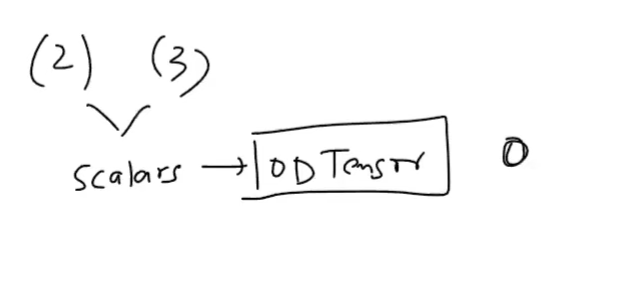 (2) (3)
Scalars → 0D Tensor 0